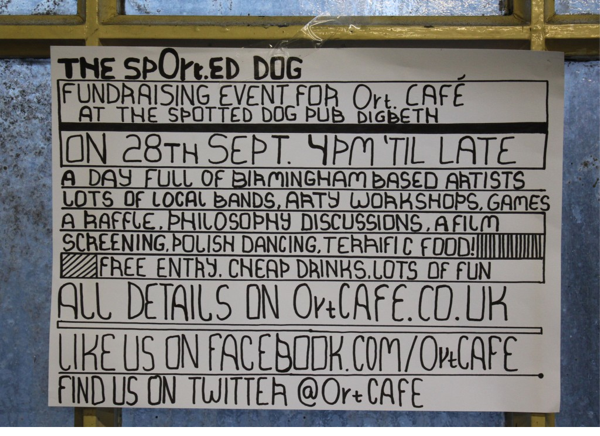 THE SPOrt.ED DOG
FUNDRAISING EVENT FOR Ort. CAFÉ
AT THE SPOTTED DOG PUB DIGBETH
ON 28TH SEPT. 4PM 'TIL LATE
A DAY FULL OF BIRMINGHAM BASED ARTISTS
LOTS OF LOCAL BANDS, ARTY WORKSHOPS, GAMES
A RAFFLE, PHILOSOPHY DISCUSSIONS, A FILM
SCREENING, POLISH DANCING, TERRIFIC FOOD!
FREE ENTRY. CHEAP DRINKS. LOTS OF FUN
ALL DETAILS ON OrtCAFE.CO.UK
LIKE US ON FACEBOOK.COM/OrtCAFE
FIND US ON TWITTER @OrtCAFE